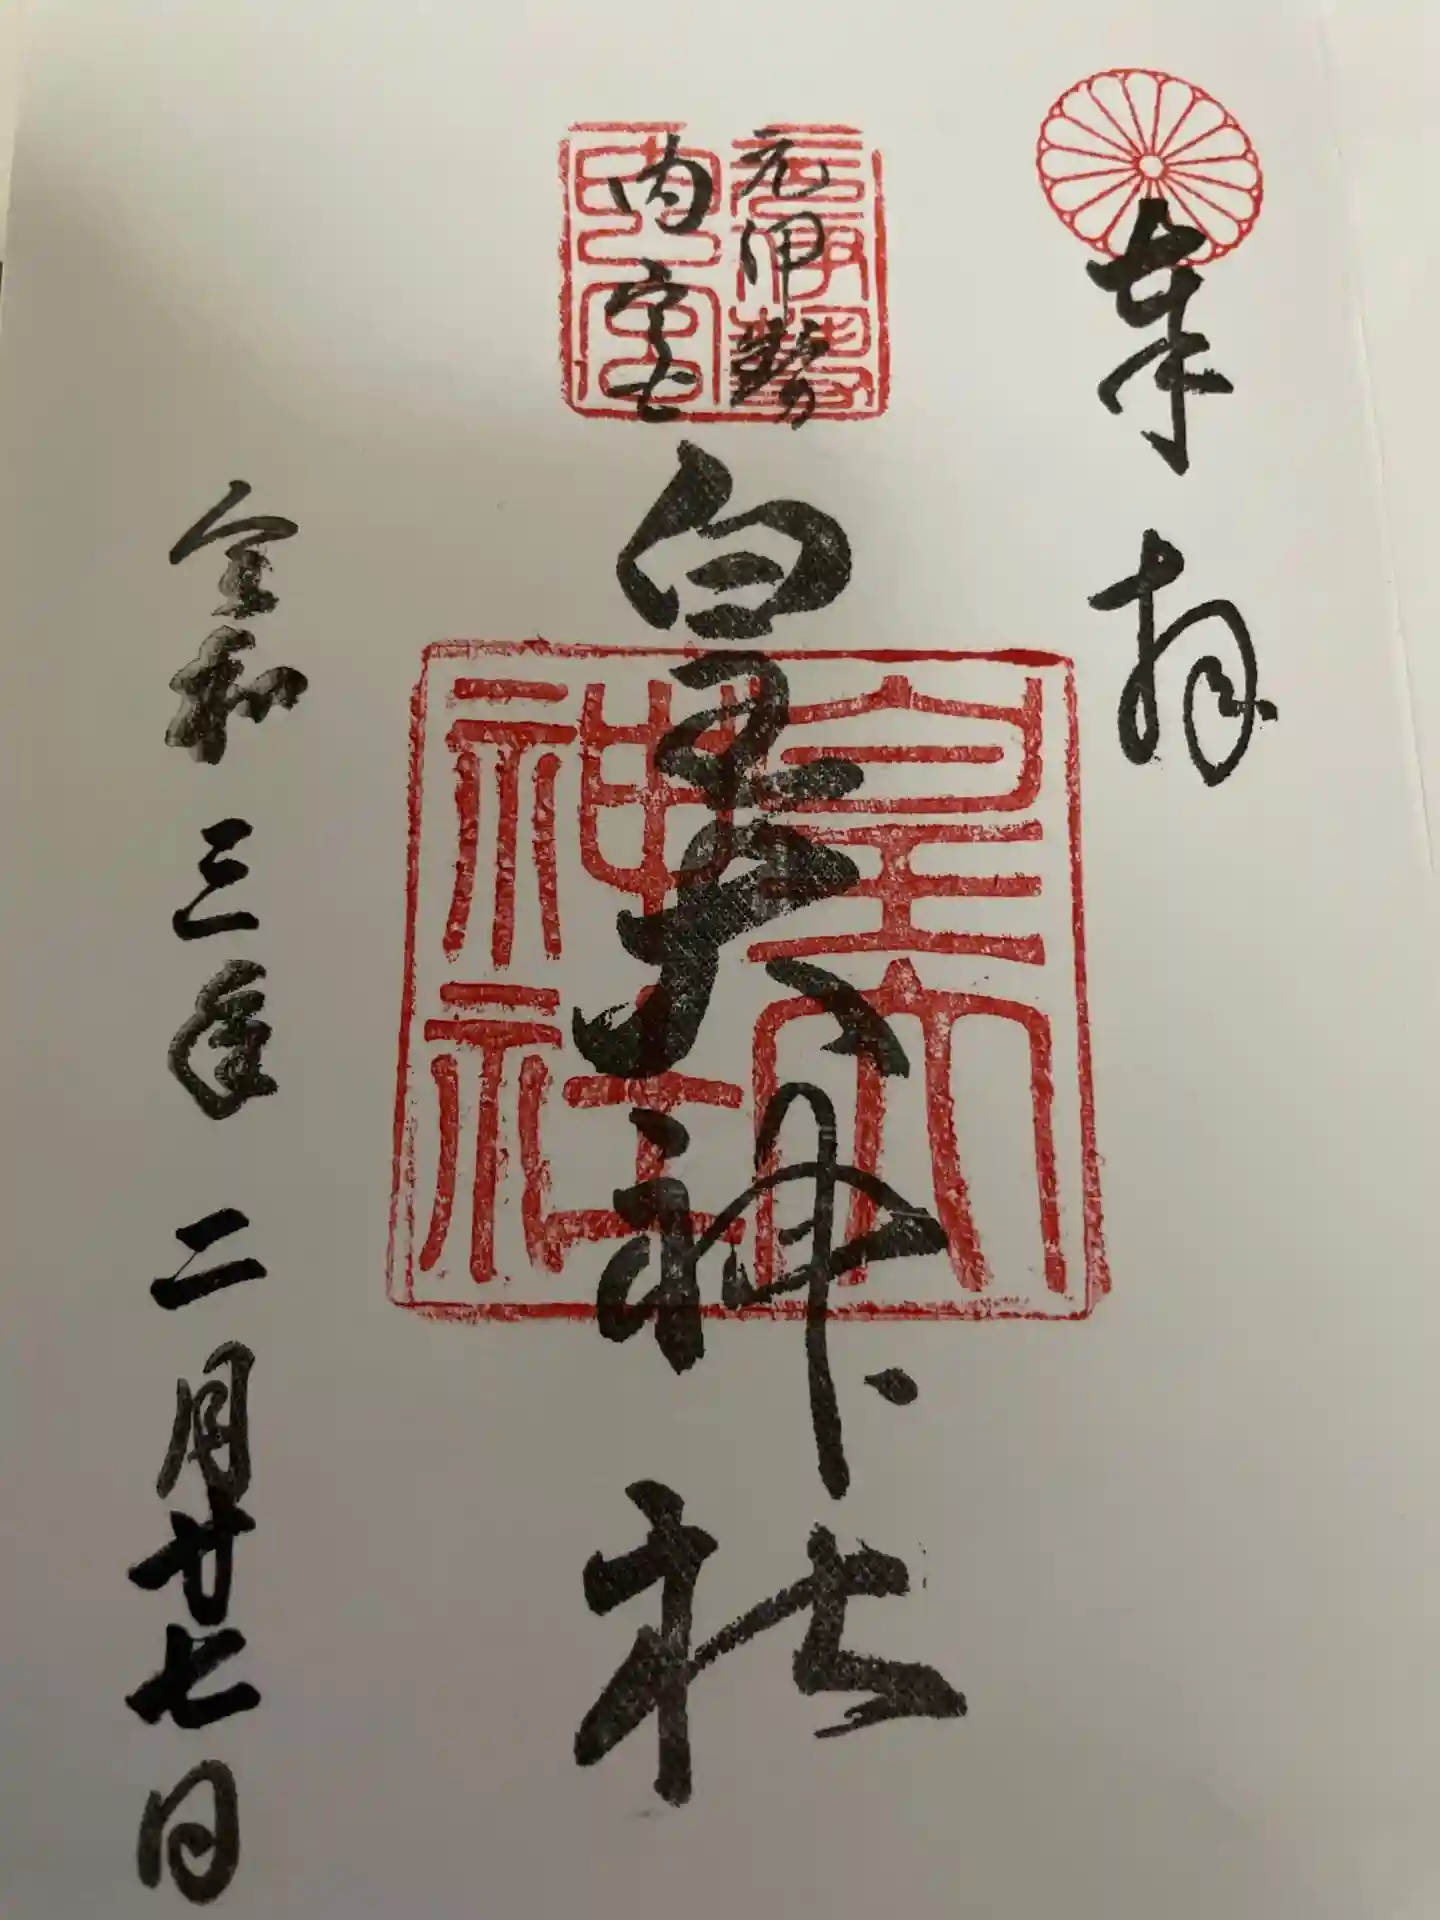 奉拝
元伊勢
内宮
皇大神社
皇大神社
令和三年二月廿七日